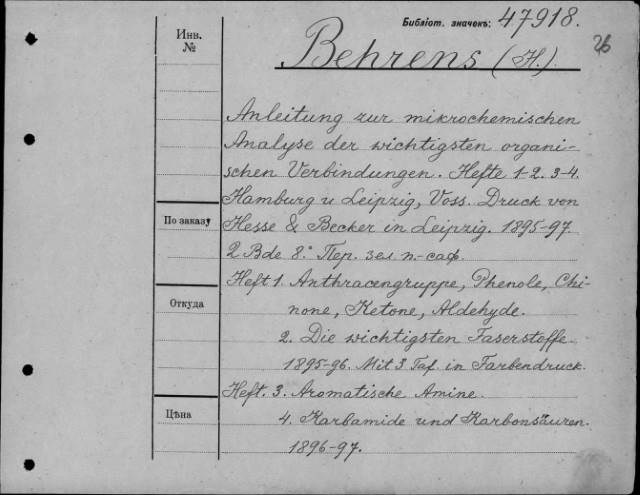 Библіот. значекъ: 47918.
26
Инв. №
Behrens (H.)
Anleitung zur mikrochemischen
Analyse der wichtigsten organi-
schen Verbindungen. Hefte 1-2. 3-4.
Hamburg u Leipzig, Voss. Druck von
По заказу
Hesse & Becker in Leipzig. 1895-97.
2 Bde 8.° Пер. зел. п.-саф.
Heft 1. Anthracengruppe, Phenole, Chi-
Откуда
none, Ketone, Aldehyde.
2. Die wichtigsten Faserstoffe
1895-96. Mit 3 Taf. in Farbendruck.
Heft. 3. Aromatische Amine.
Цѣна
4. Karbamide und Karbonsäuren.
1896-97.